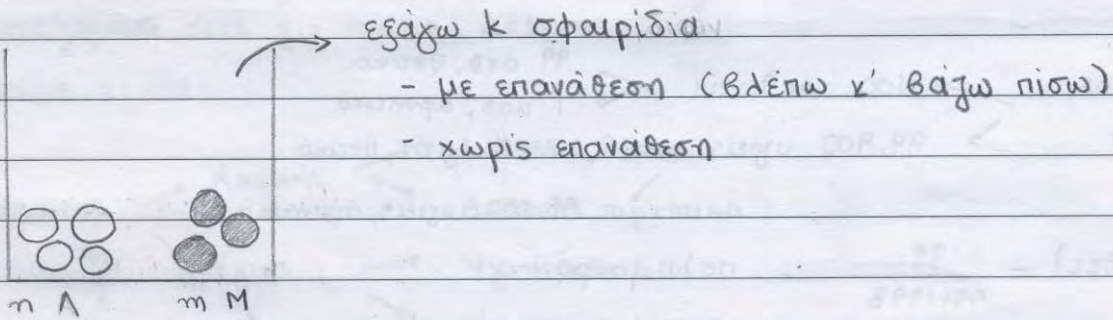 εξάγω k σφαιρίδια
- με επανάθεση (βλέπω κ' βάζω πίσω)
- χωρίς επανάθεση
n A m M